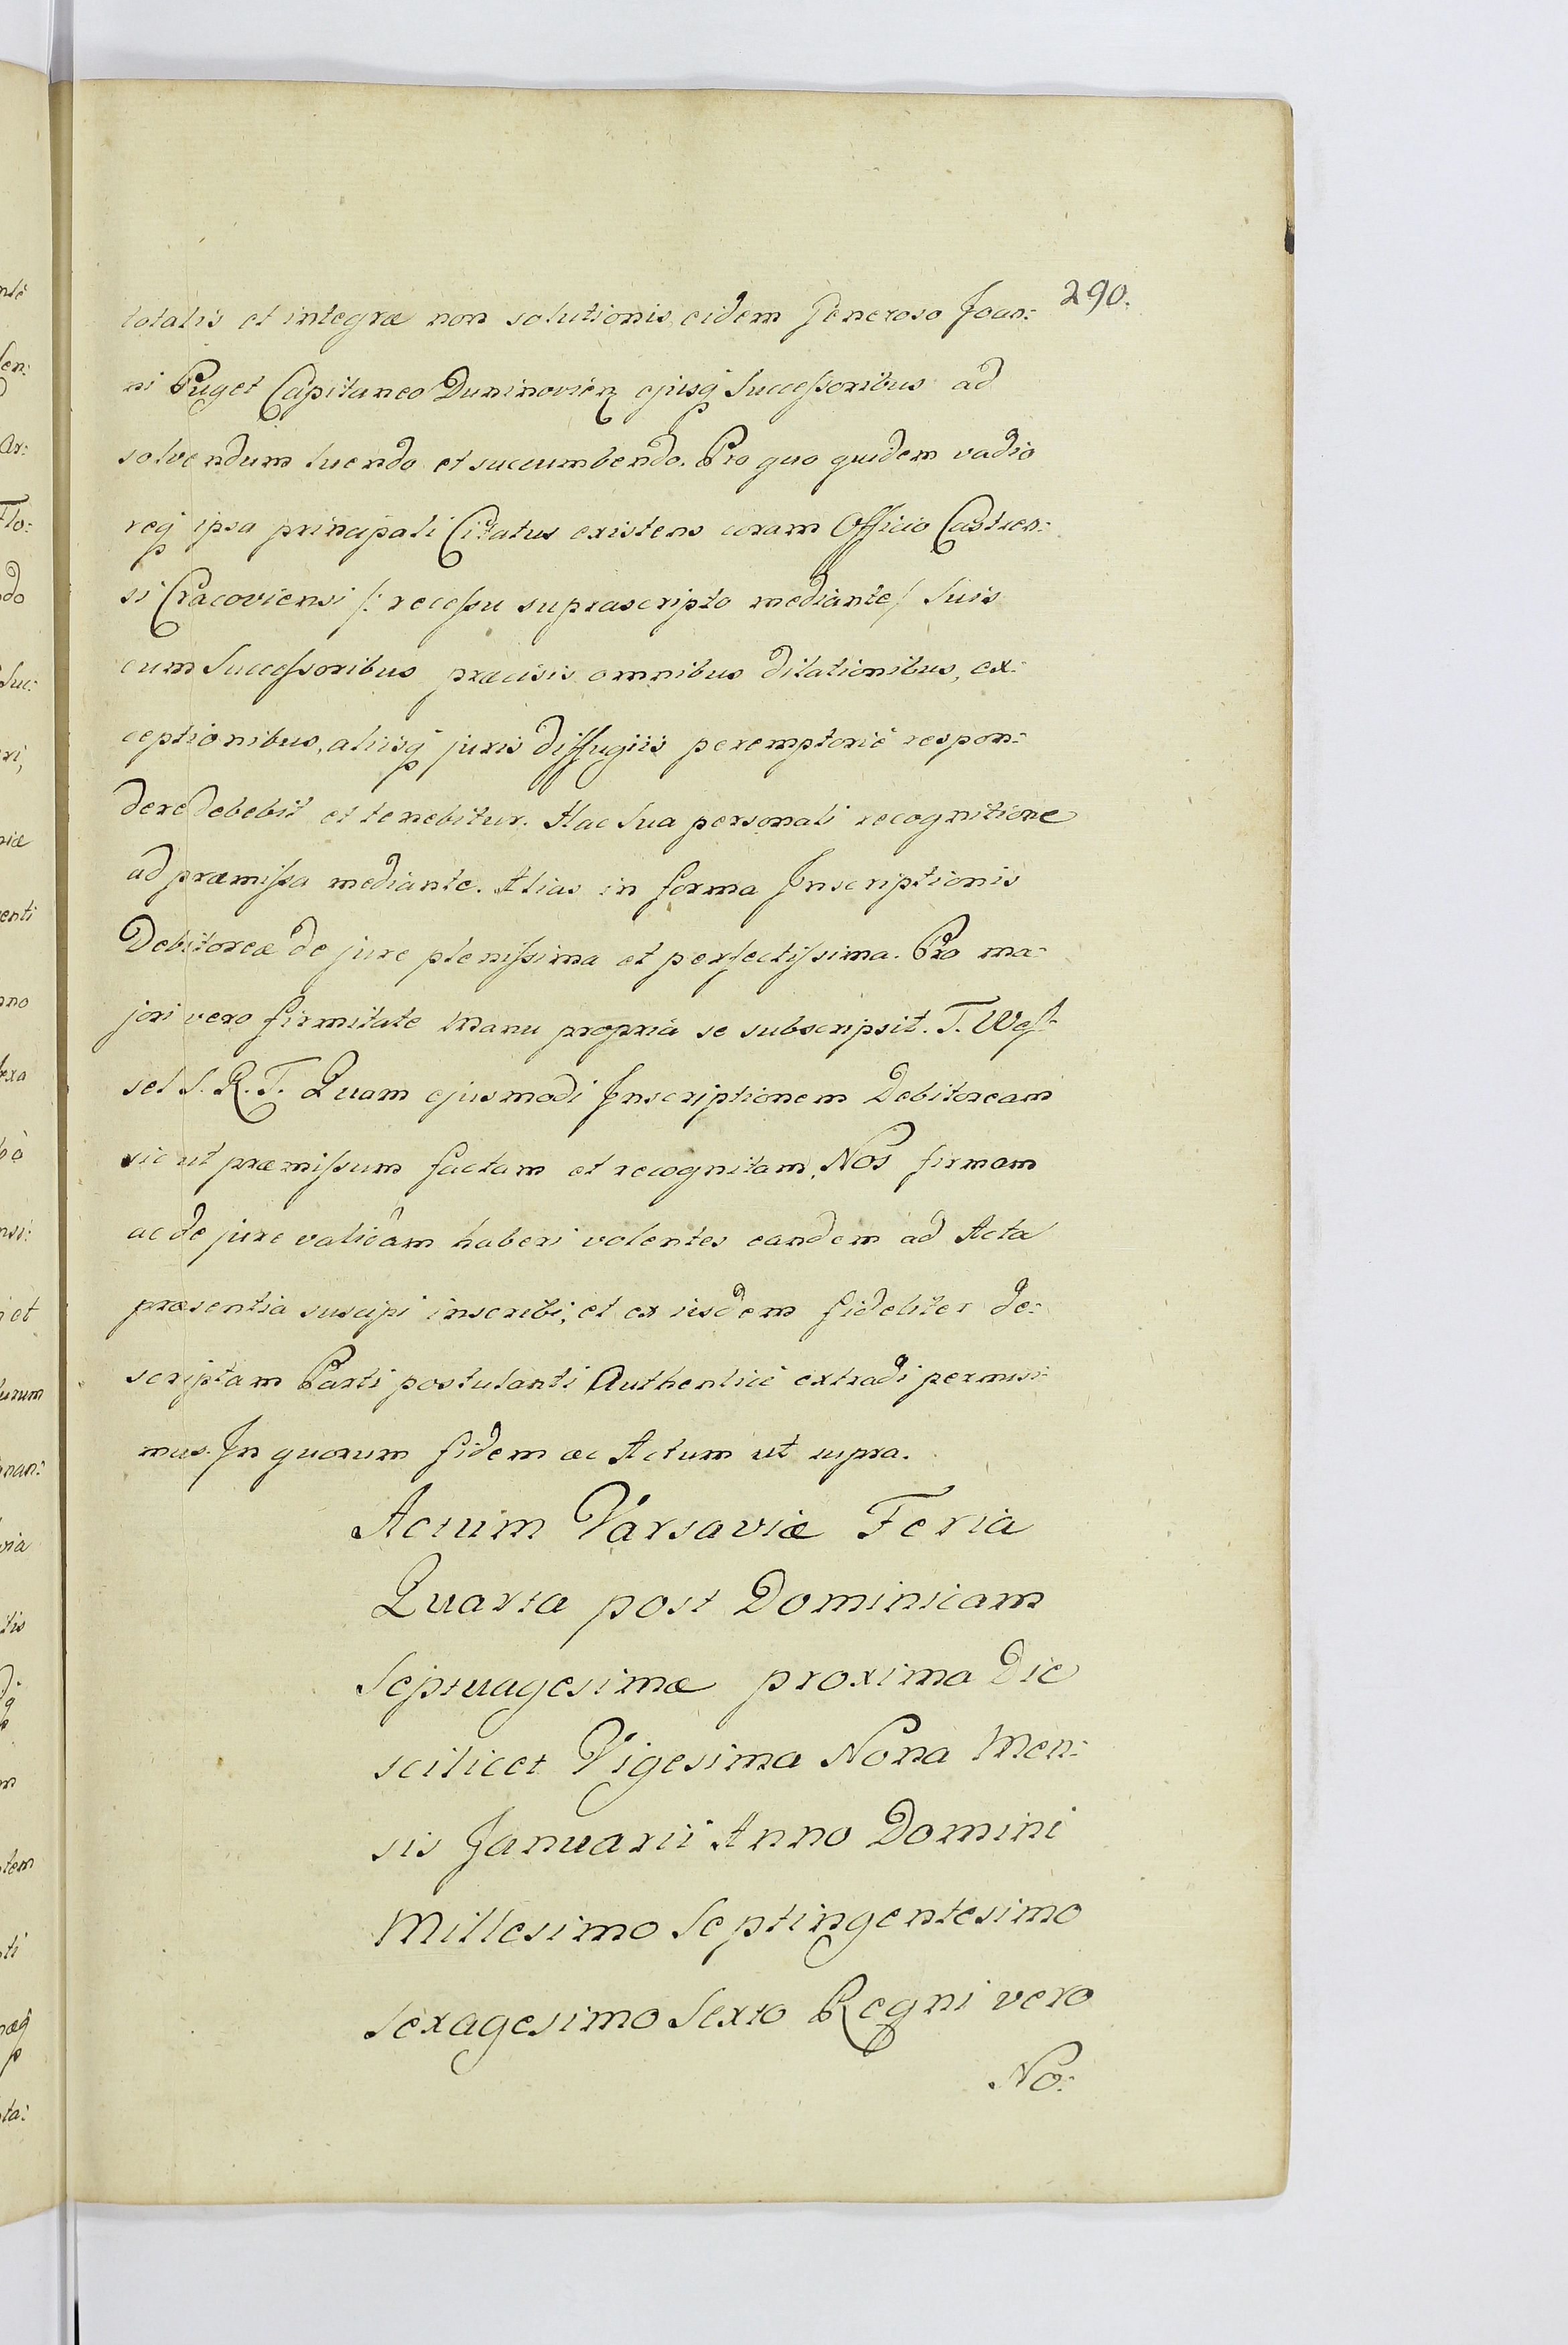 290.
totalis et integræ non solutionis eidem Generoso Joan:
ni Puget Capitaneo Duninovien ejusq Successoribus ad
solvendum luendo et succumbendo. Pro quo quidem vadio
req ipsa principali Citatus existens coram Officio Castren:
si Cracoviensi /: recessu suprascripto mediante / Suis
cum Successoribus præcisis omnibus dilationibus, ex:
ceptionibus, aliisq juris diffugiis peremptorié respon:
dere debebit et tenebitur. Hac Sua personali recognitione
ad præmissa mediante. Alias in forma Inscriptionis
Debitoreæ de jure plenissima et perfectissima. Pro ma:
jori vero firmitate Manu propriâ se subscripsit. T. Wess
sel S. R. T. Quam ejusmodi Inscriptionem Debitoream
sic ut præmissum factam et recognitam, Nos firmam
ac de jure validam haberi volentes eandem ad Acta
præsentia suscipi inscribi, et ex iisdem fideliter de:
scriptam Parti postulanti Authenticè extradi permisi:
mus. In quorum fidem ac Actum ut supra.
Actum Varsaviæ Feria
Quarta post Dominicam
Septuagesimæ proxima Die
scilicet Vigesima Nona Men:
sis Januarii Anno Domini
Millesimo Septingentesimo
Sexagesimo Sexto Regni vero
No: